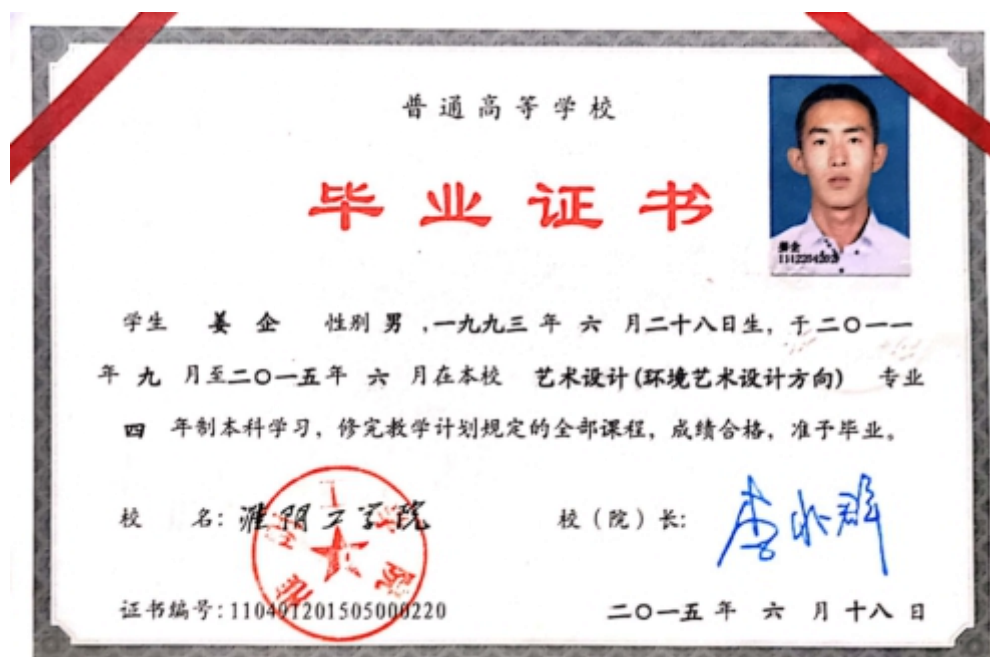 普通高等学校
毕业证书
姜企
学生 姜企 性别 男 ,一九九三 年 六 月二十八日生, 于二〇一一
年 九 月至二〇一五年 六 月在本校 艺术设计(环境艺术设计方向) 专业
四 年制本科学习, 修完教学计划规定的全部课程, 成绩合格, 准予毕业。
校 名: 淮阴工学院 校(院)长:
证书编号: 110491201505000220 二〇一五 年 六 月 十八 日